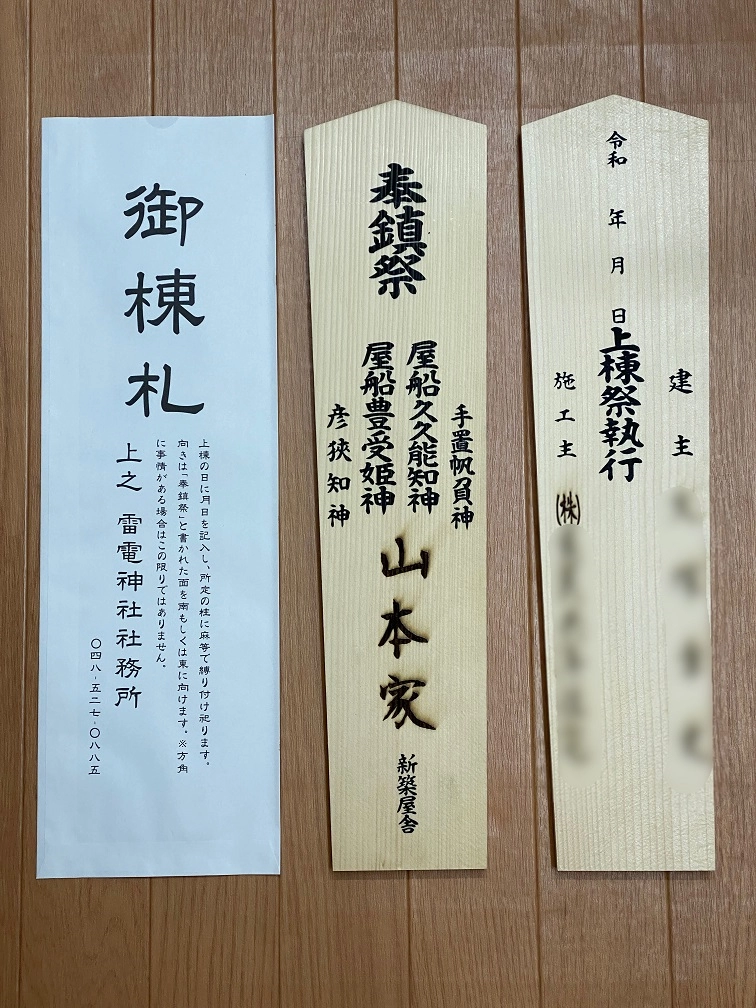 御棟札
上棟の日に月日を記入し、所定の柱に麻等で縛り付け祀ります。
向きは「奉鎮祭」と書かれた面を南もしくは東に向けます。※方角
に事情がある場合はこの限りではありません。
上之 雷電神社社務所
〇四八-五二七-〇八八五
奉鎮祭
手置帆負神
屋船久久能知神
屋船豊受姫神
彦狭知神
山本家
新築屋舎
令和 年 月 日
上棟祭執行
建主
施工主 ㈱